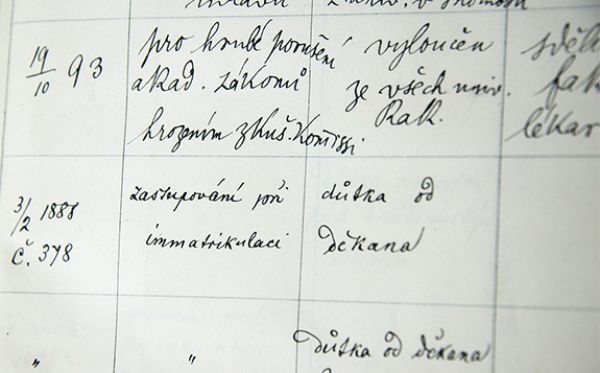 19/10 93
pro hrubé porušení
akad. zákonů
hrozením zkuš. Komissi
vyloučen
ze všech univ.
Rak.
sděl
fak
lékar
3/2 1888
č. 378
zastupování při
immatrikulaci
důtka od
děkana
„
„
důtka od děkana